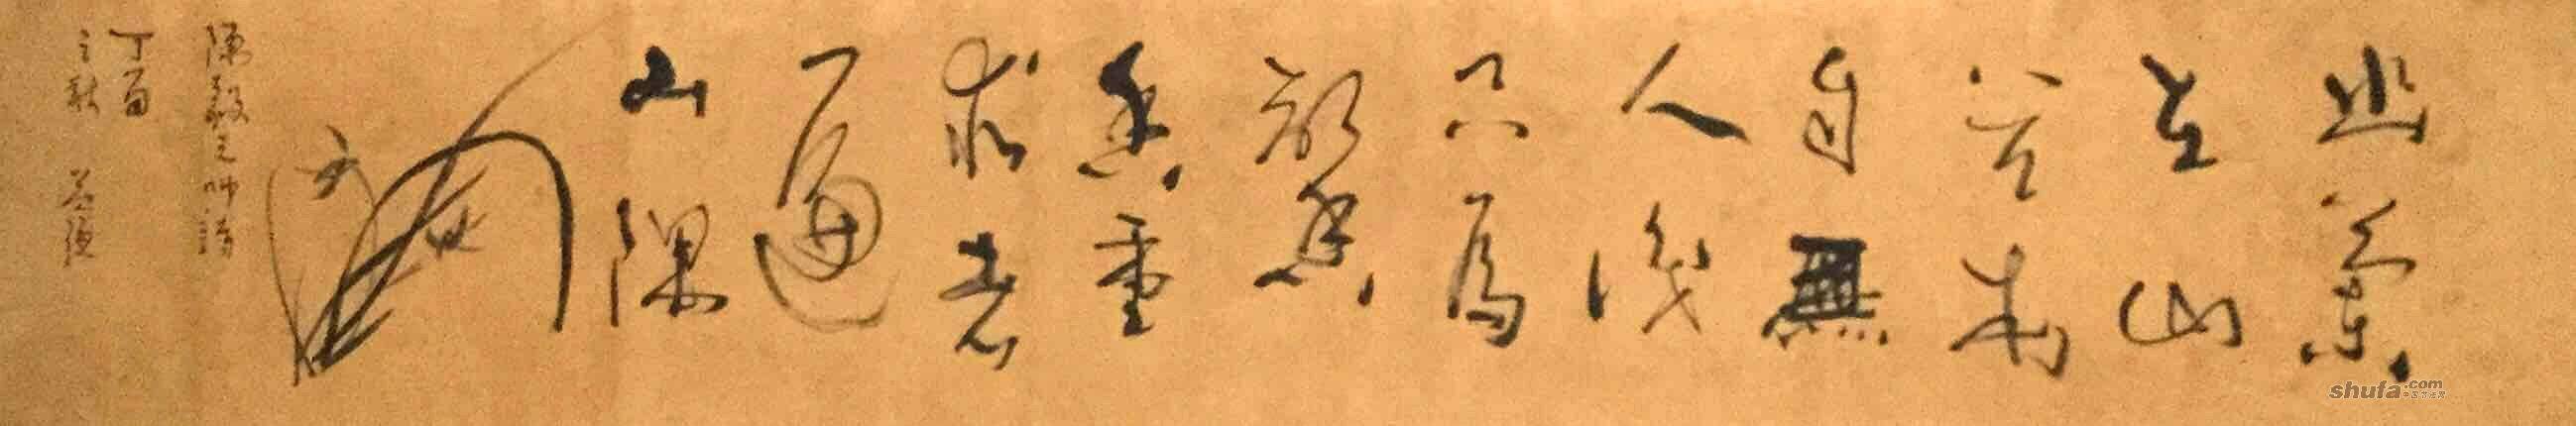 幽蘭
在山
谷本
自無
人識
只為
馨
香重
求者
遍
山隅
陳毅元帥詩
丁酉
之秋
shufa.com